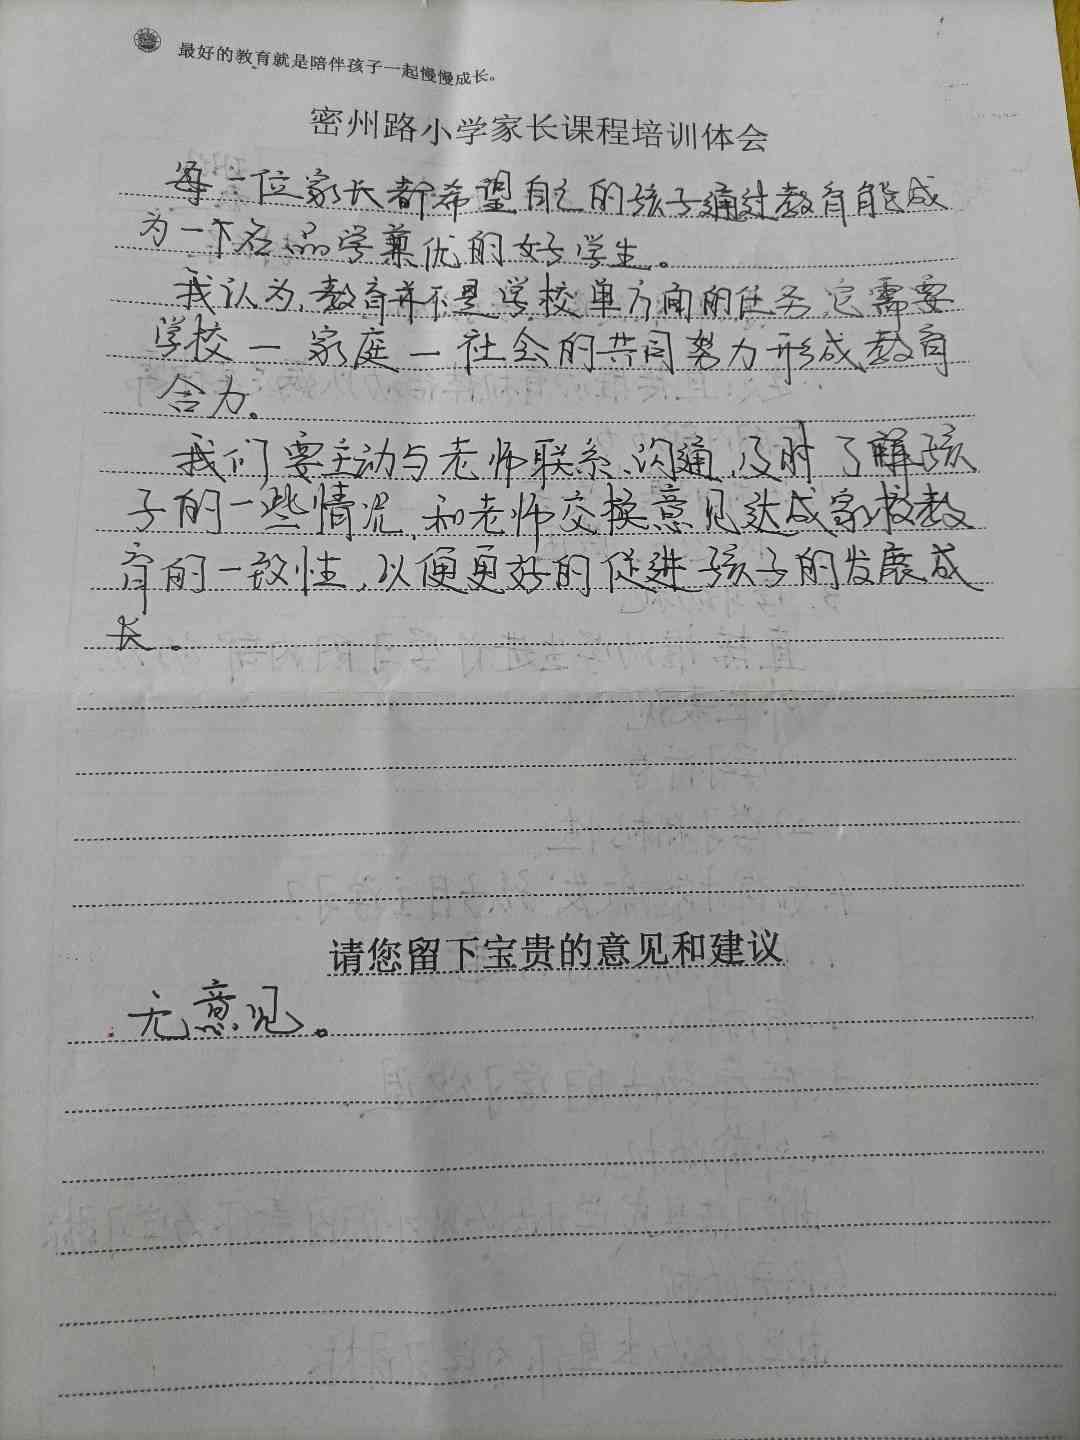 最好的教育就是陪伴孩子一起慢慢成长。
密州路小学家长课程培训体会
每一位家长都希望自己的孩子通过教育能成
为一个名品学兼优的好学生。
我认为,教育并不是学校单方面的任务,它需要
学校一家庭一社会的共同努力形成教育
合力。
我们要主动与老师联系、沟通,及时了解孩
子的一些情况,和老师交换意见达成家校教
育的一致性,以便更好的促进孩子的发展成
长。
请您留下宝贵的意见和建议
无意见。